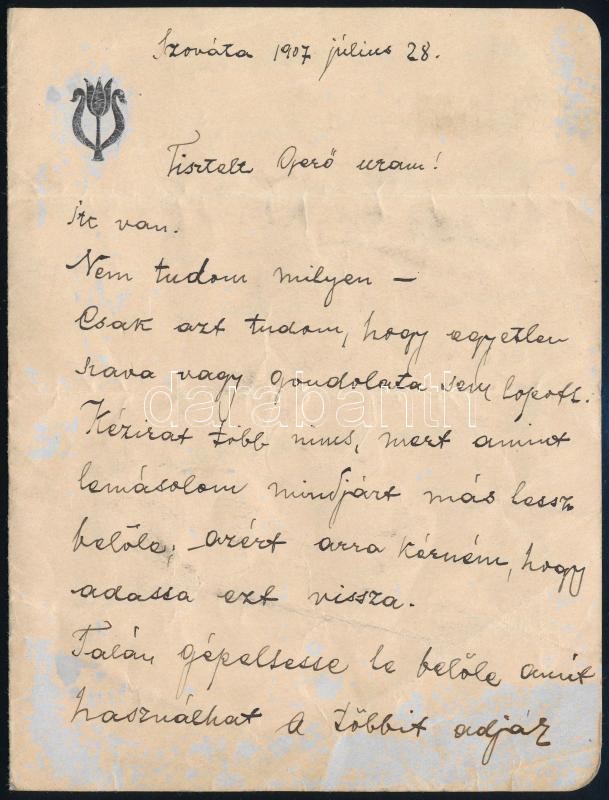 Szováta 1907 július 28.
Tisztelt Gerő uram!
Itt van.
Nem tudom milyen –
Csak azt tudom, hogy egyetlen
szava vagy gondolata sem lopott.
Kézirat több nincs, mert amint
lemásolom mindjárt más lessz
belőle; azért arra kérném, hogy
adassa ezt vissza.
Talán gépeltesse le belőle amit
használhat A többit adják
darabanth